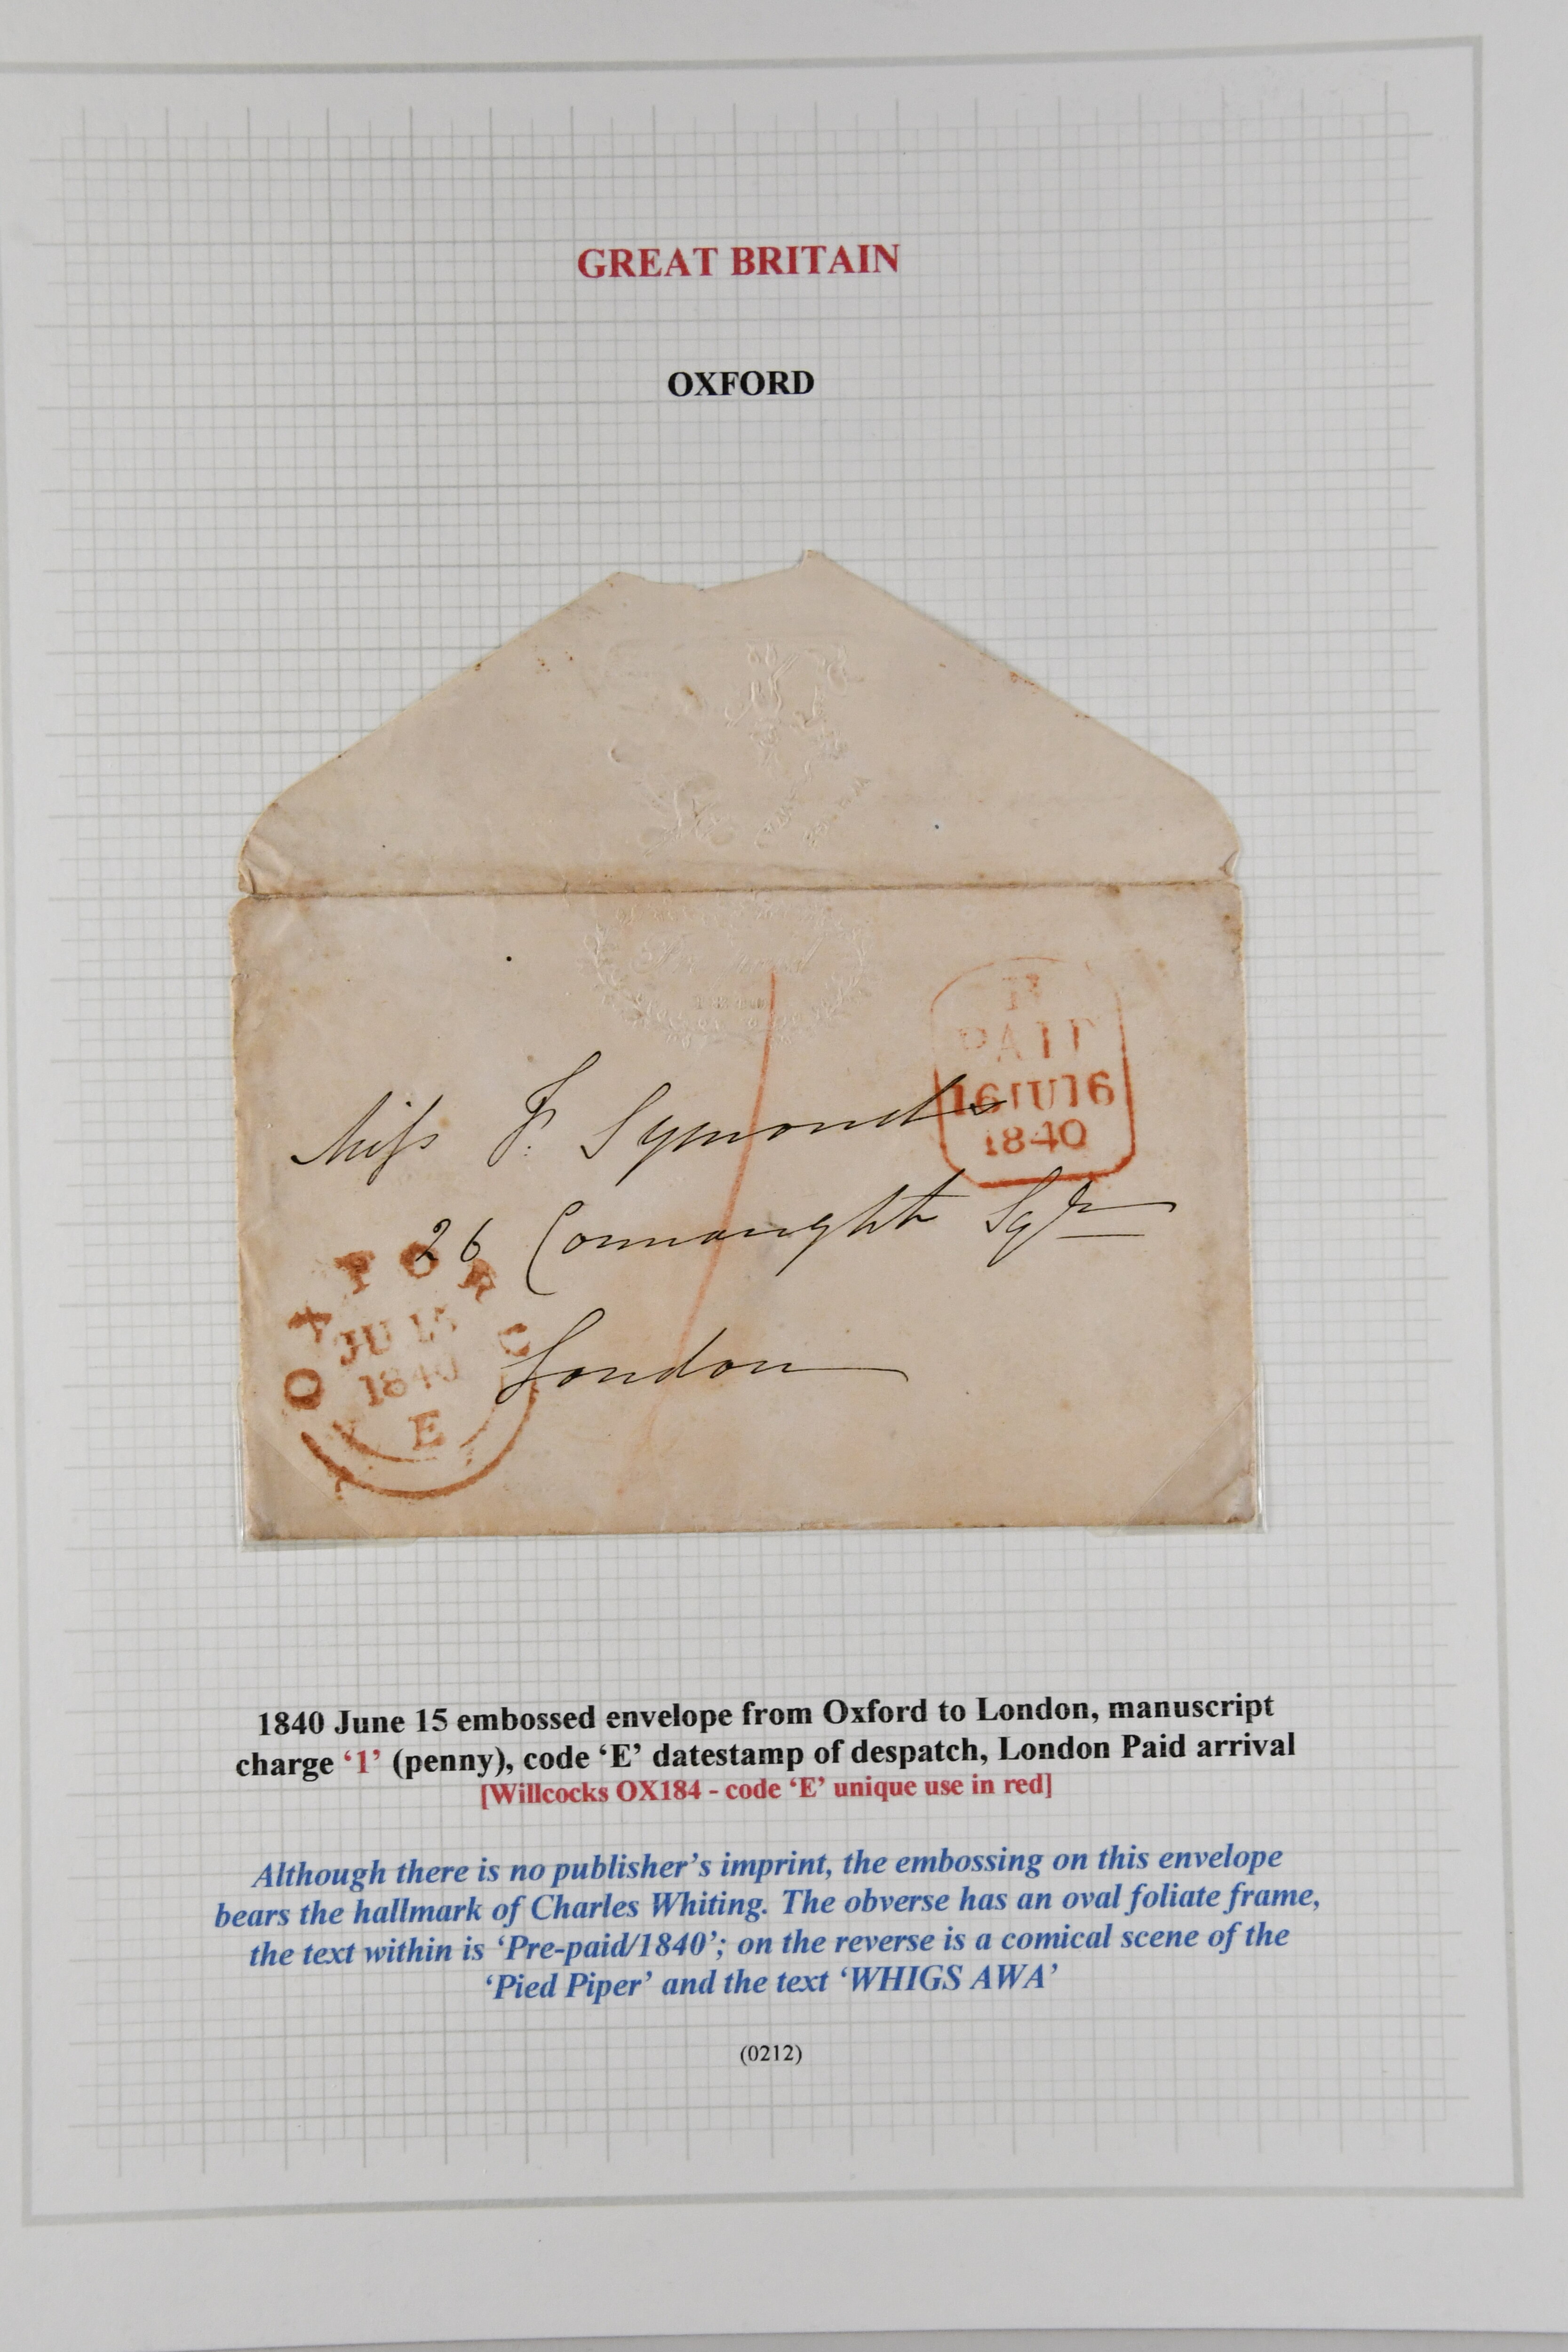 GREAT BRITAIN
OXFORD
PAID
16JU16
1840
Miſs F. Symonds
26 Connaught Sqr
London
OXFORD
JU 15
1840
E
1
1840 June 15 embossed envelope from Oxford to London, manuscript
charge ‘1’ (penny), code ‘E’ datestamp of despatch, London Paid arrival
[Willcocks OX184 - code ‘E’ unique use in red]
Although there is no publisher’s imprint, the embossing on this envelope
bears the hallmark of Charles Whiting. The obverse has an oval foliate frame,
the text within is ‘Pre-paid/1840’; on the reverse is a comical scene of the
‘Pied Piper’ and the text ‘WHIGS AWA’
(0212)